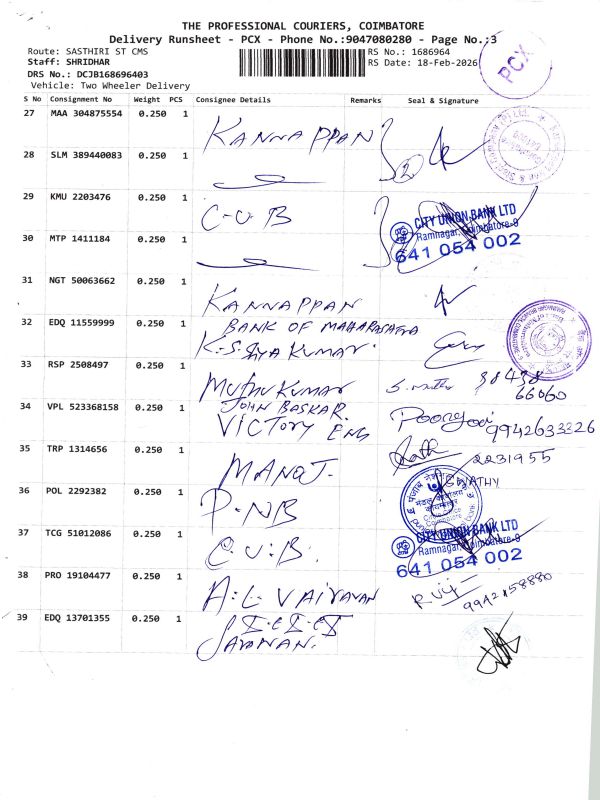 THE PROFESSIONAL COURIERS, COIMBATORE
Delivery Runsheet - PCX - Phone No.:9047080280 - Page No.:3
Route: SASTHIRI ST CMS
RS No.: 1686964
Staff: SHRIDHAR
RS Date: 18-Feb-2026
DRS No.: DCJB168696403
Vehicle: Two Wheeler Delivery
PCX
S No Consignment No Weight PCS Consignee Details Remarks Seal & Signature
27 MAA 304875554 0.250 1 KANNAPPAN
28 SLM 389440083 0.250 1
29 KMU 2203476 0.250 1 C-U-B
CITY UNION BANK LTD
Ramnagar, Coimbatore-9
641 054 002
30 MTP 1411184 0.250 1
31 NGT 50063662 0.250 1 KANNAPPAN
32 EDQ 11559999 0.250 1 BANK OF MAHARASTRA
33 RSP 2508497 0.250 1 MUTHU KUMAR
34 VPL 523368158 0.250 1 JOHN BASKAR.
VICTORY ENG
35 TRP 1314656 0.250 1 MANOJ. 2231955
SWATHY
36 POL 2292382 0.250 1 P-NB
37 TCG 51012086 0.250 1 C.U.B.
CITY UNION BANK LTD
Ramnagar, Coimbatore-9
641 054 002
38 PRO 19104477 0.250 1 A.L. VAIRAVAN
39 EDQ 13701355 0.250 1